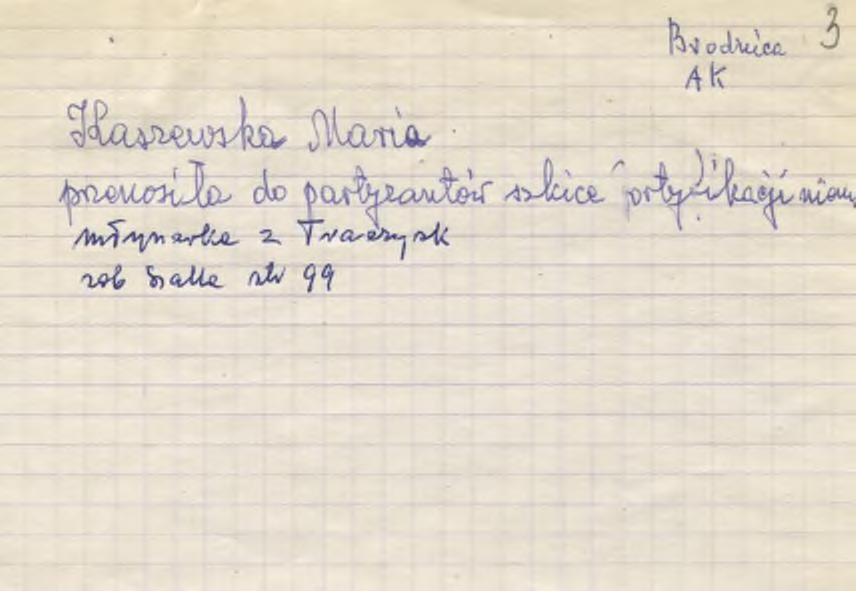 3
Brodnica
AK
Kaszewska Maria
przenosiła do partyzantów szkice fortyfikacji niem.
młynarka z Traczysk
zob Salla str 99